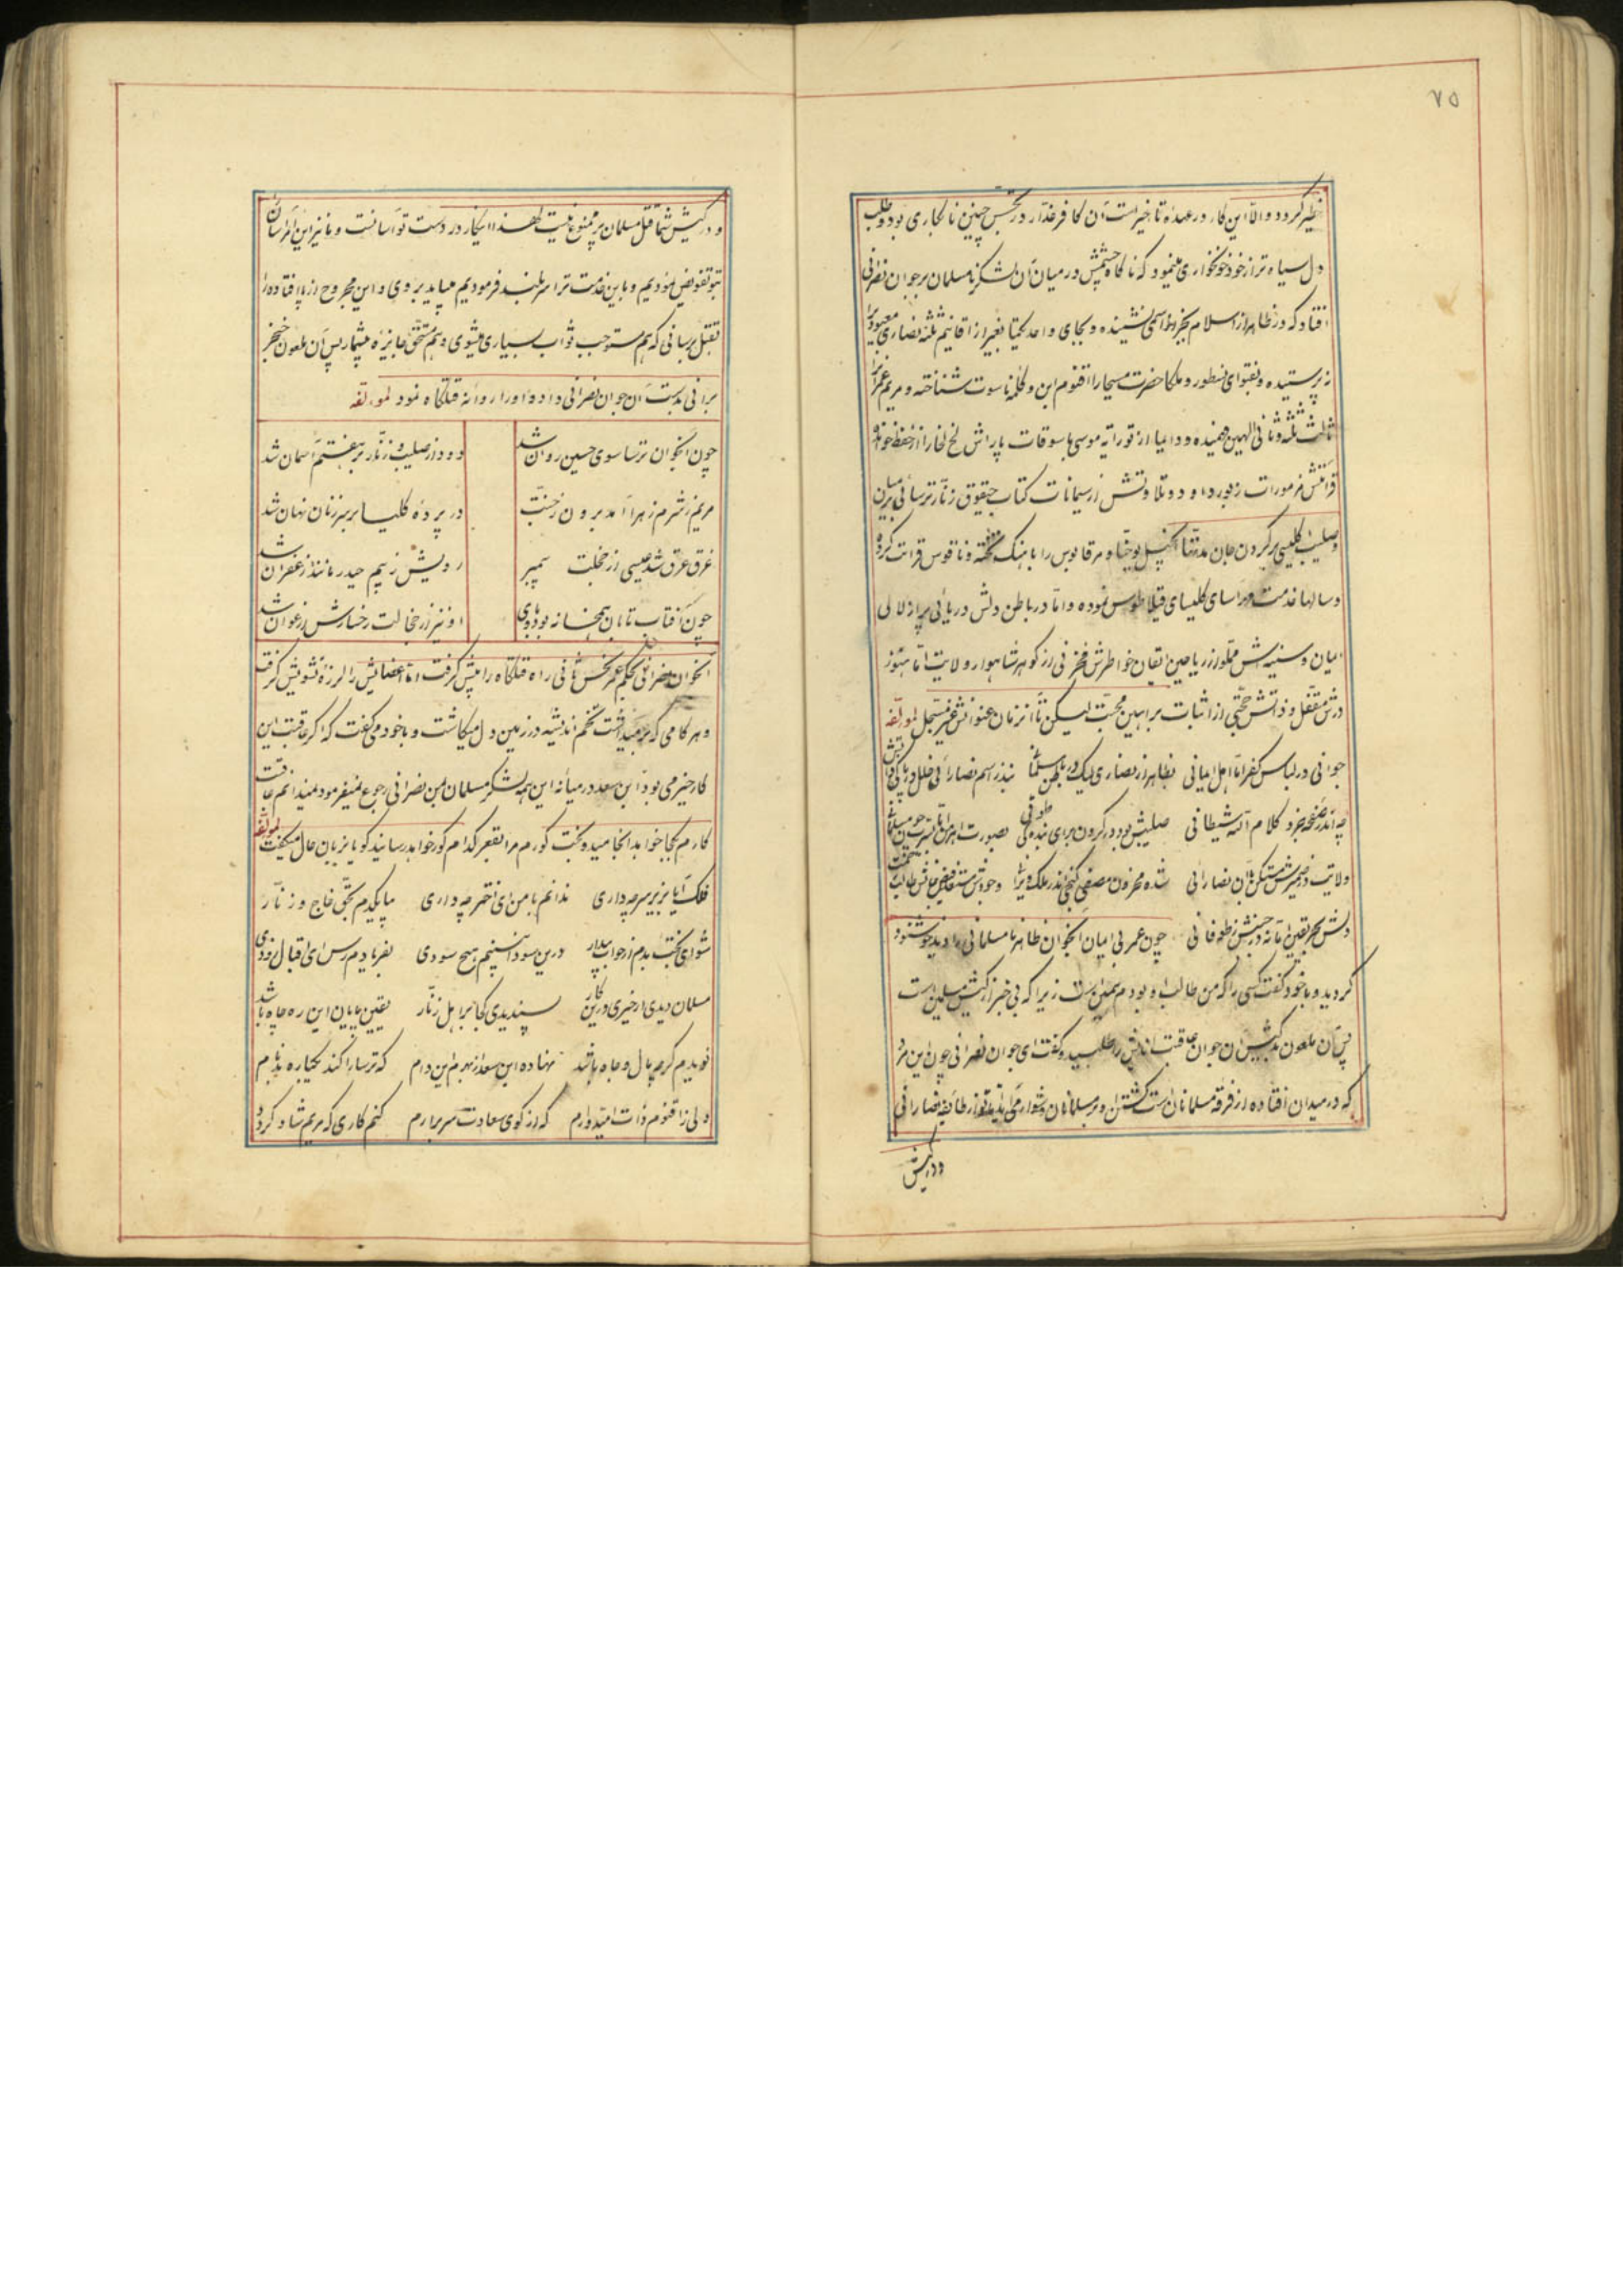 ۷۵
گردد والا این کار در عهدهٔ تاخیر است آن کافر غدار در تجسس چنین نابکاری بود و طلب
دل سیاه تر از خود خونخواری مینمود که ناگاه چشمش در میان آن لشکر نامسلمان بر جوان نصرانی
افتاد که در ظاهر از اسلام بجز اسمی نشنیده و بجای واحد یکتا بغیر از اقانیم ثلثه نصاری معبودیرا
نپرستیده و بفتوای نسطور و ملکا حضرت مسیحا را اقنوم ابن و کلمه ناسوت شناخته و مریم عمرانرا
ثالث ثلثه و ثانی الهین فهمیده و دایما از توراته موسی پاسوقات پاراش لخ لخا را از حفظ خوانده
قرائتش مزمورات زبور داود و تلاوتش از سیمانات کتاب حیقوق زنار ترسائی بر میان
و صلیب کلیسی بر گردن جان مدتها انجیل یوحنا و مرقابوس را باهنگ تخته و ناقوس قرائت کرده
و سالها خدمت کلیسای قبلاطوس نموده و اما در باطن دلش دریائی پر از لالی
ایمان و سینه‌اش مملو از ریاحین ایقان خواطرش مخزنی از گوهر شاهوار ولایت اما هنوز
درش مقفل و ذاتش حجتی از اثبات براهین محبت لیکن تا آنزمان عنوانش غیر مسجل لمولفه
جوانی در لباس کفر اما اهل ایمانی بظاهر از نصاری لیک در باطن مسلمانی
چه اندر صفحه جزو کلام آیه شیطانی صلیبش بود در گردن برای بندگی طوقی بصورت
ولایت در ضمیرش متمکن نصارانی شده مخزون گنجی اندر ملک ویرانی
دلش بحر یقین اما نه در جنبش ز طوفانی چون عمر بی ایمان آنجوان ظاهر نامسلمانی را دید خوشنود
گردید و با خود گفت کسی را که من طالب او بودم همین است زیرا که بی خبر از کیش مسلمین است
پس آن ملعون بدکیش آن جوان عاقبت اندیش را طلبیده گفت ای جوان نصرانی چون این مرد
که در میدان افتاده از فرقه مسلمانان است کشتن او بر مسلمانان دشوار می آید و تو از طایفه نصارانی
و در کیش
و در کیش شما قتل مسلمان ممنوع نیست لهذا اینکار در دست تو آسانست و ما نیز این امر آسان
بتو تفویض نمودیم و باین خدمت ترا سربلند فرمودیم میباید بروی و این مجروح از پا افتاده را
بقتل برسانی که هم مستوجب ثواب بسیاری میشوی و هم مستحق جایزه بیشمار پس آن ملعون خنجر
برانی بدست آن جوان نصرانی داد و او را روانه قتلگاه نمود لمولفه
چون آنجوان ترسا سوی حسین روان شد دود از صلیب و زنار بر هفتم آسمان شد
مریم ز شرم زهرا آمد برون ز جنت در پردهٔ کلیسا بر سر زنان نهان شد
غرق عرق شد عیسی از خجلت پیمبر رویش ز بیم حیدر مانند زعفران شد
چون آفتاب تابان همخانه بود با وی او نیز از خجالت رخسارش ارغوان شد
آنجوان نصرانی بحکم عمر نحس ثانی راه قتلگاه را پیش گرفت اما اعضایش را لرزهٔ تشویش گرفت
و هر گامی که بر میداشت تخم اندیشه در زمین دل میکاشت و با خود میگفت که اگر عاقبت این
کار خیر می بود ابن سعد در میانه این همه لشکر مسلمان بمن نصرانی رجوع نمیفرمود نمیدانم عاقبت
کارم بکجا خواهد انجامید و بخت کورم مرا بقعر کدام گور خواهد رسانید گویا بزبان حال میگفت لمولفه
فلک آیا بزیر سر چه داری ندانم با من ای اختر چه داری بحق خاج و زنار
شو ای بخت بدم از خواب بیدار درین سودا نبینم هیچ سودی بفریادم رس ای اقبال زودی
مسلمان دیدی ار خیری درین کار پسندیدی کجا بر اهل زنار یقین پایان این ره چاه باشد
نویدم گرچه مال و جاه باشد نهاده ابن سعد از بهرم این دام که ترسا را کند یکباره بدنام
ولی ز اقنوم ذات امیدوارم که از کوی سعادت سر برآرم کنم کاری که مریم شاد گردد